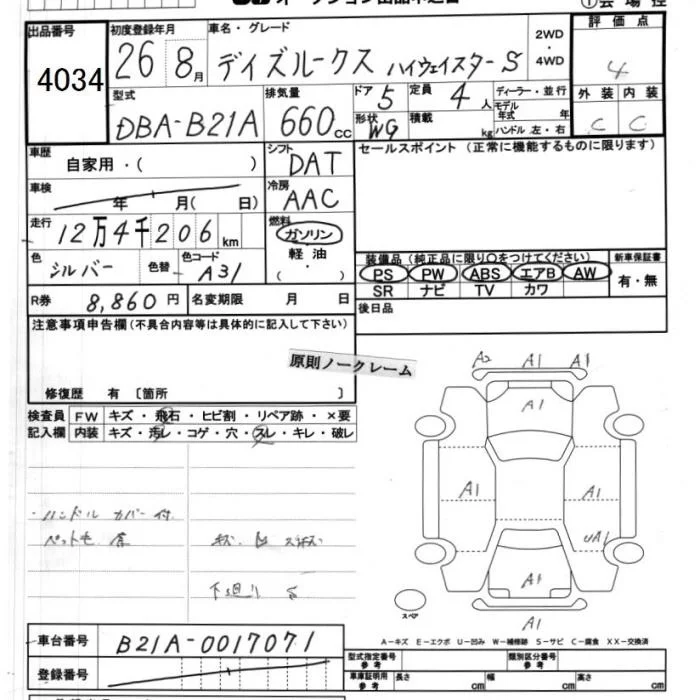 オークション出品申込書
①会場控
出品番号 初度登録年月 車名・グレード 2WD・4WD 評価点
4034 26 8月 デイズルークス ハイウェイスターS 4
型式 排気量 ドア 5 定員 4人 ディーラー・並行 外装 内装
DBA-B21A 660cc 形状 WG 積載 kg モデル年式 年 ハンドル 左・右 C C
車歴 自家用・( ) シフト DAT セールスポイント (正常に機能するものに限ります)
車検 年 月( 日) 冷房 AAC
走行 12万4千206km 燃料 ガソリン 軽油 ・( )
色 シルバー 色替 色コード A31
装備品 (純正品に限り○をつけてください) 新車保証書
PS PW ABS エアB AW 有・無
SR ナビ TV カワ
R券 8,860円 名変期限 月 日 後日品
注意事項申告欄(不具合内容等は具体的に記入して下さい)
原則ノークレーム
修復歴 有 〔箇所 〕
検査員 FW キズ・飛石・ヒビ割・リペア跡・×要
記入欄 内装 キズ・汚レ・コゲ・穴・スレ・キレ・破レ
A2 A1 A1
A1
A1 A1
UA1
A1
A1
・ハンドルカバー付
ペット毛
キズ
下廻り S
スペア
A-キズ E-エクボ U-凹み W-補修跡 S-サビ C-腐食 XX-交換済
車台番号 B21A-0017071
登録番号
型式指定番号 参考 類別区分番号 参考
車庫証明用 参考 長さ cm 幅 cm 高さ cm